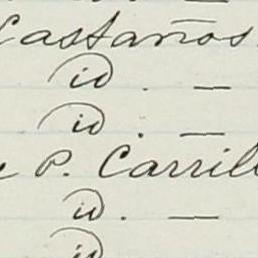 Castaños.
id. —
id. —
P. Carrill
id. —
id